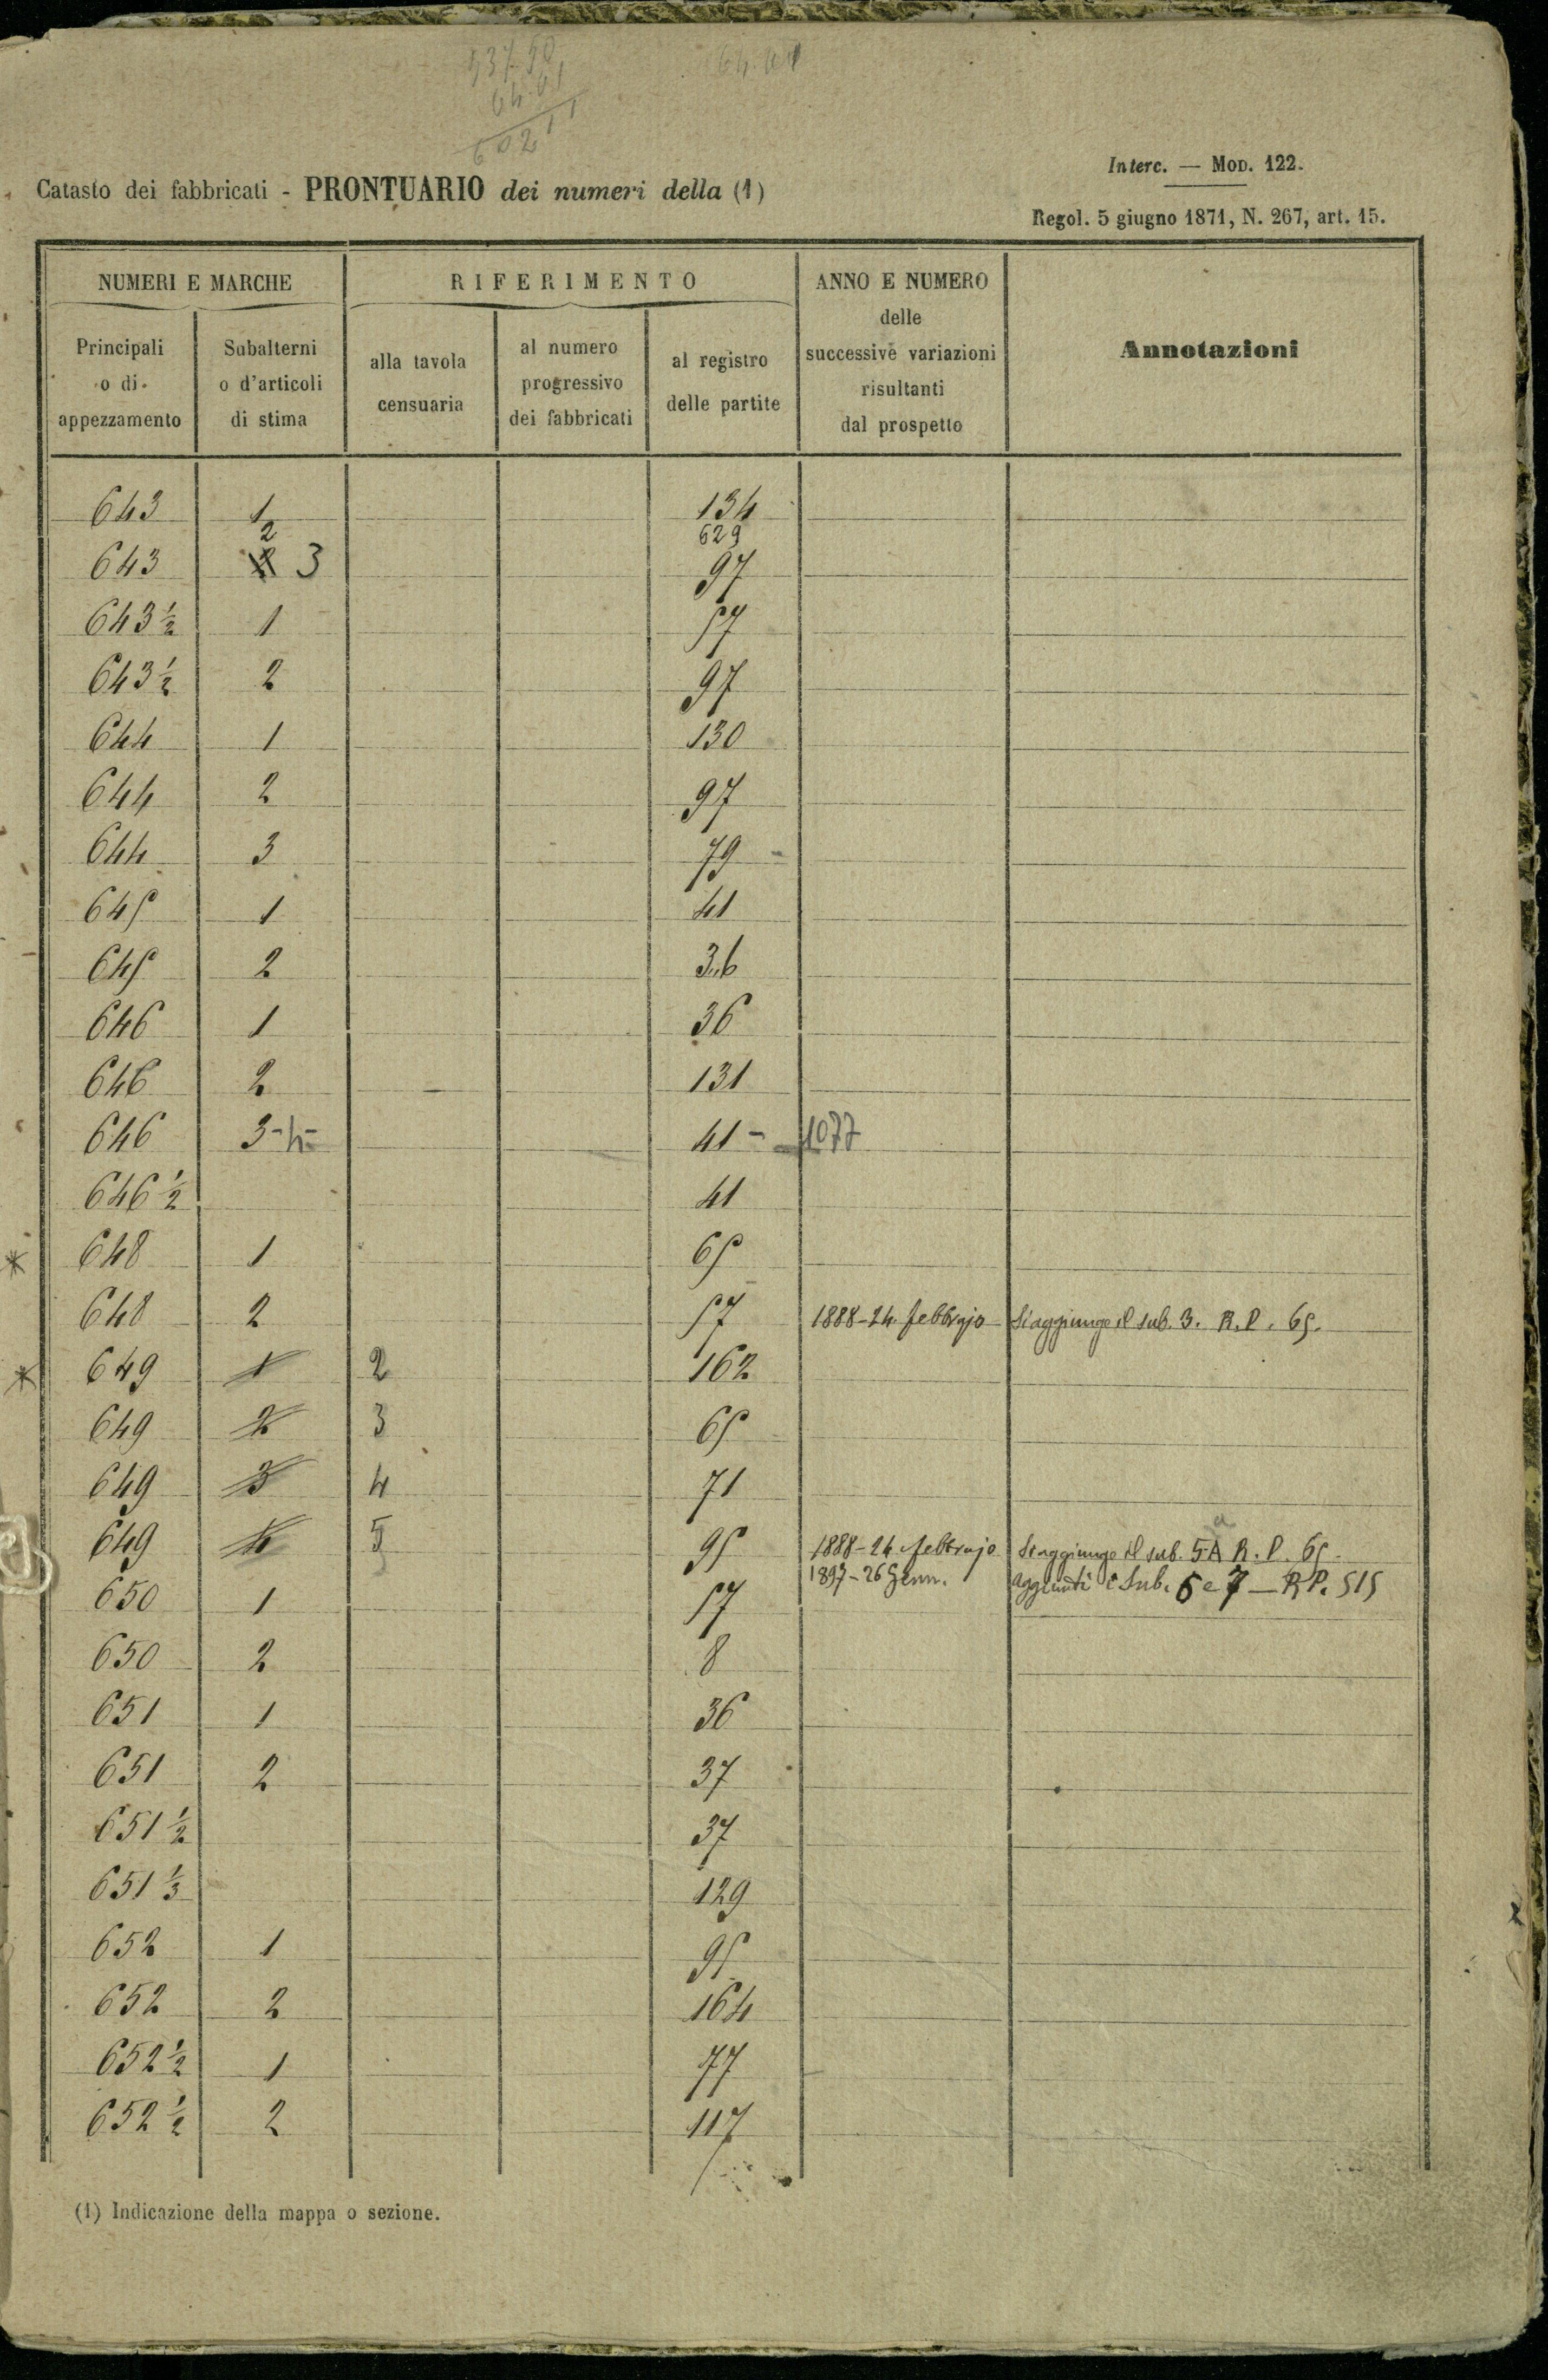 537.50
64.61
602 11
64.61
Interc. — Mod. 122.
Catasto dei fabbricati - PRONTUARIO dei numeri della (1)
Regol. 5 giugno 1871, N. 267, art. 15.
NUMERI E MARCHE
RIFERIMENTO
ANNO E NUMERO delle successive variazioni risultanti dal prospetto
Annotazioni
Principali o di appezzamento
Subalterni o d'articoli di stima
alla tavola censuaria
al numero progressivo dei fabbricati
al registro delle partite
643 1 134
2 629
643 3 97
643 1/2 1 57
643 1/2 2 97
644 1 130
644 2 97
644 3 79
645 1 41
645 2 36
646 1 36
646 2 131
646 3-4- 41 - 1077
646 1/2 41
* 648 1 65
648 2 57 1888-24 febbrajo Si aggiunge il sub. 3. R.P. 65.
* 649 1 2 162
649 2 3 65
649 3 4 71
649 4 5 95 1888-24 febbrajo Si aggiunge il sub. 5 R.P. 65.
1897-26 Genn. aggiunti i Sub. 6 e 7 — R.P. 515
650 1 57
650 2 8
651 1 36
651 2 37
651 1/2 37
651 1/3 129
652 1 95
652 2 164
652 1/2 1 77
652 1/2 2 117
(1) Indicazione della mappa o sezione.